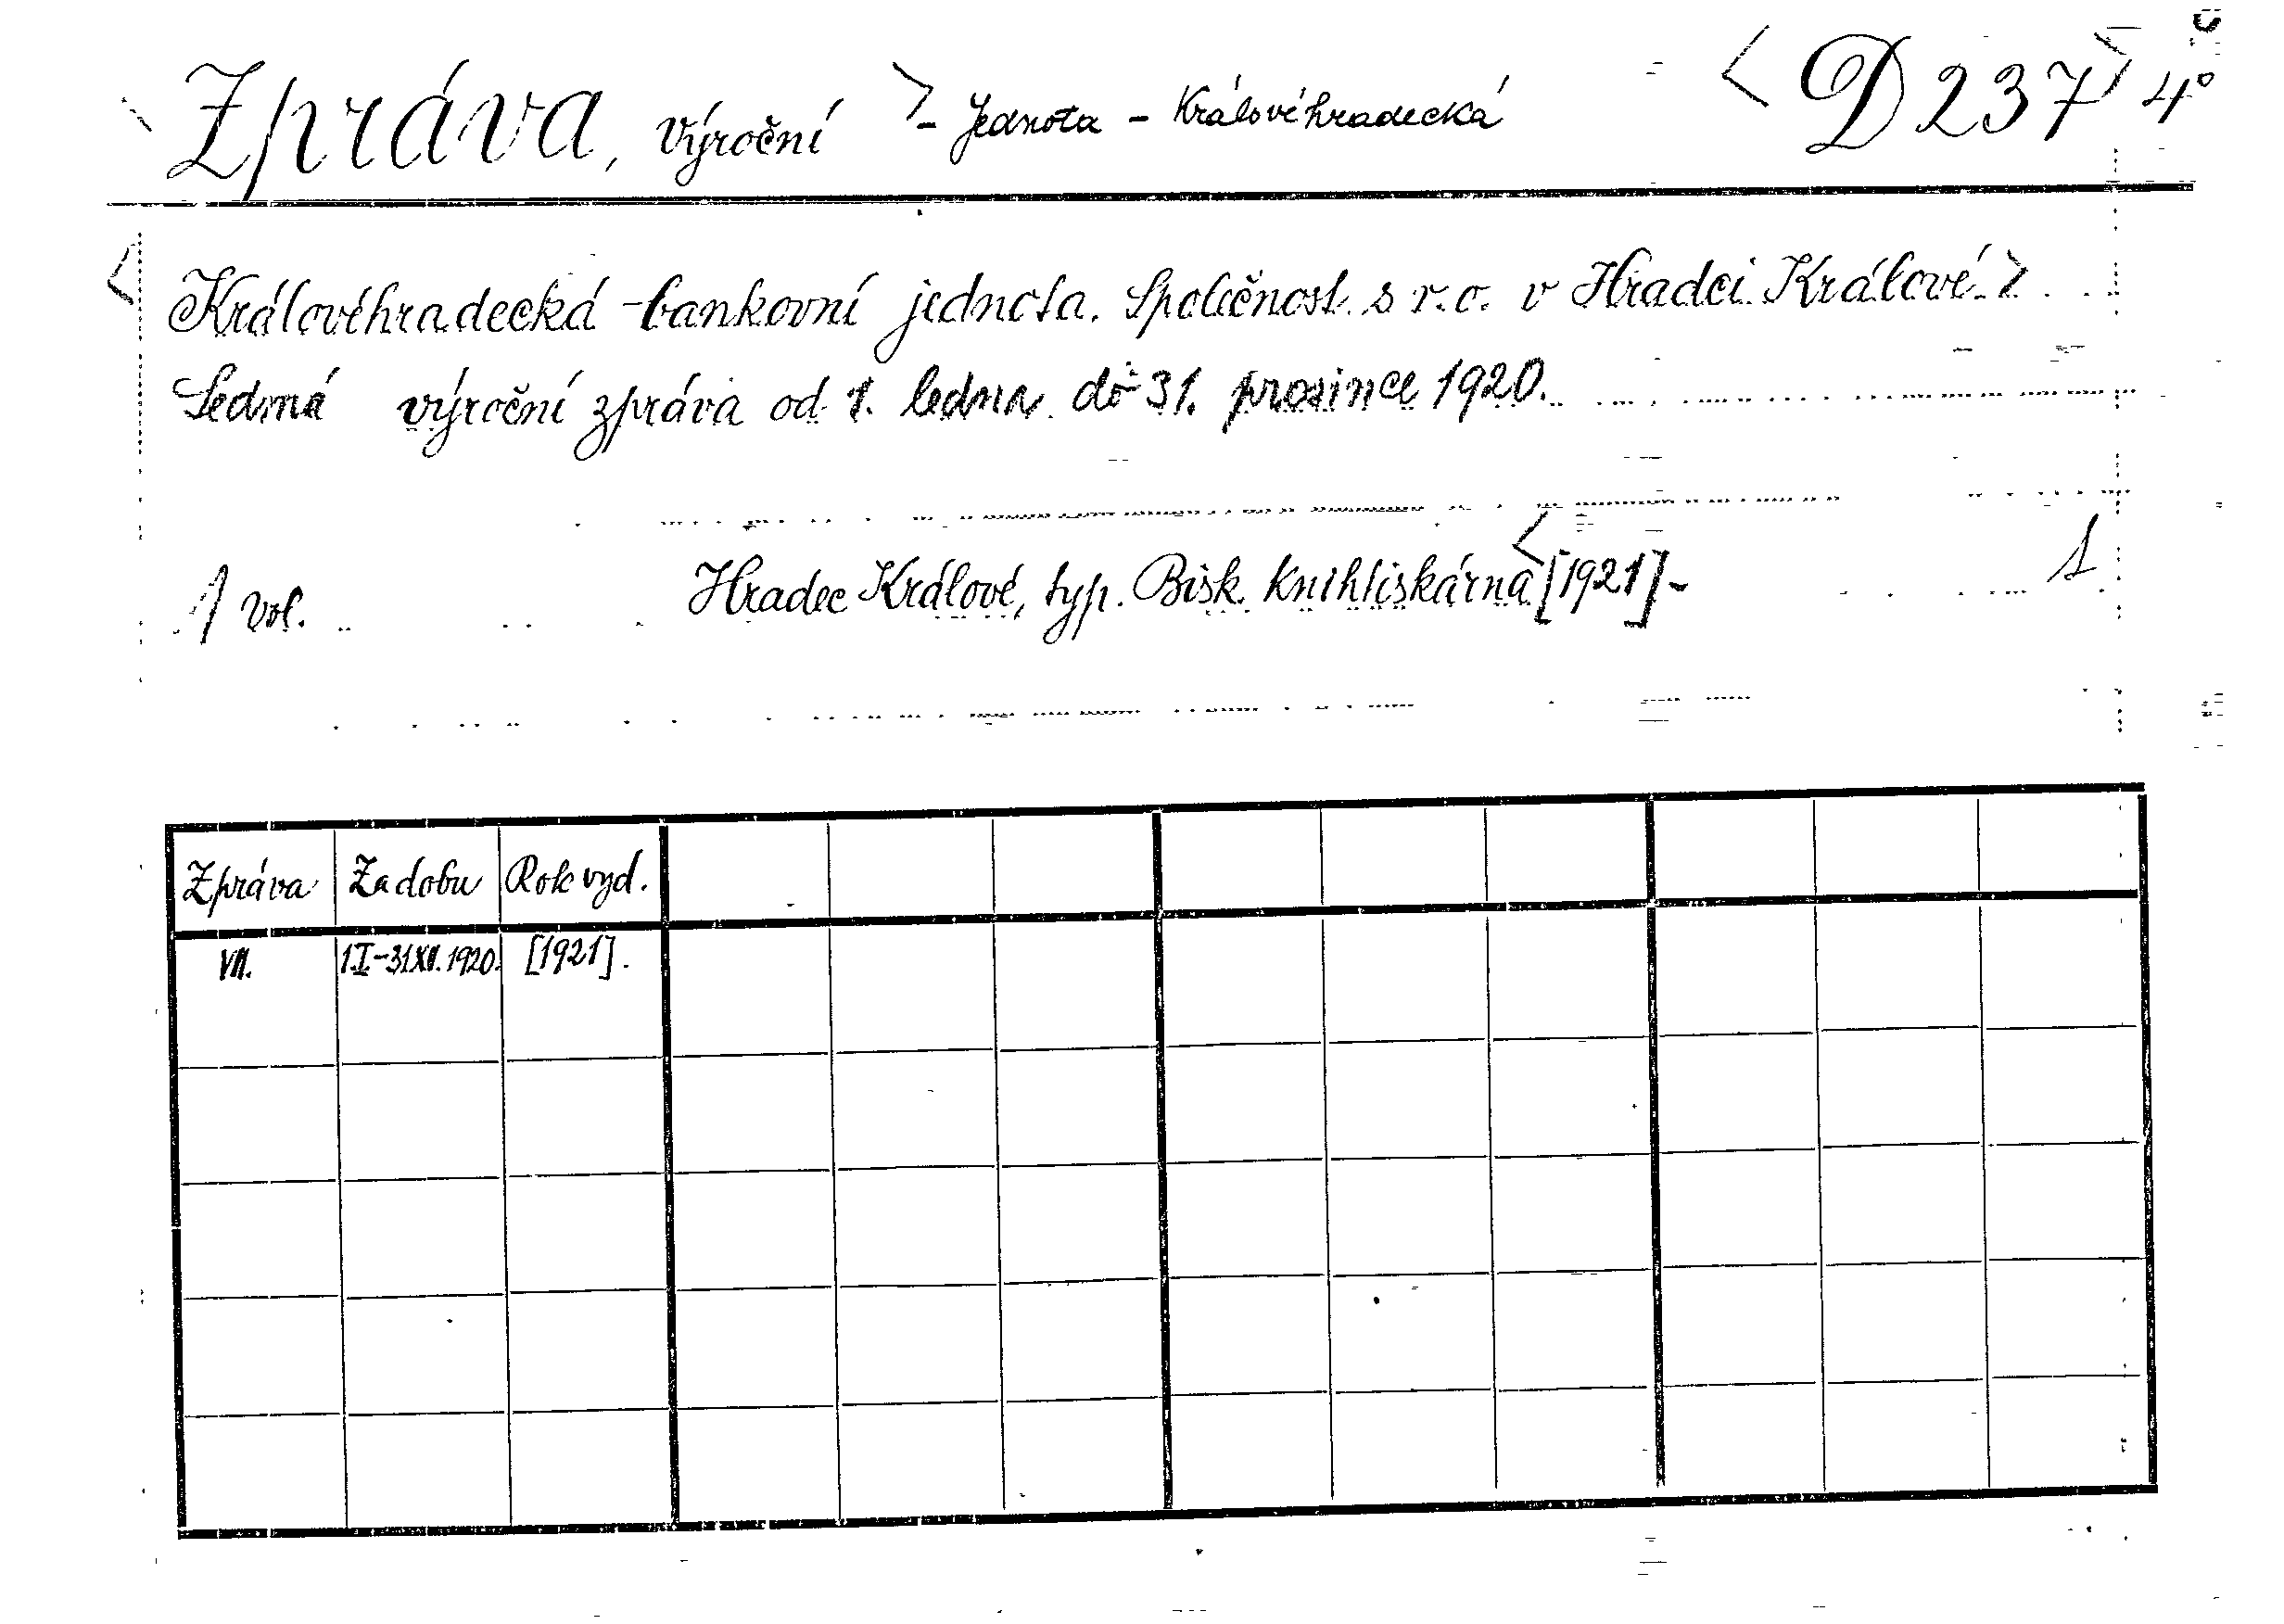 <Zpráva, výroční> - Jednota - Královéhradecká <D 237> 4°
<Královéhradecká bankovní jednota. Společnost s r.o. v Hradci Králové.>
Sedmá výroční zpráva od 1. ledna do 31. prosince 1920.
1 vol. Hradec Králové, typ. Bisk. Knihtiskárna <[1921]- 1
Zpráva Za dobu Rok vyd.
VII. 1.I-31.XII.1920. [1921].